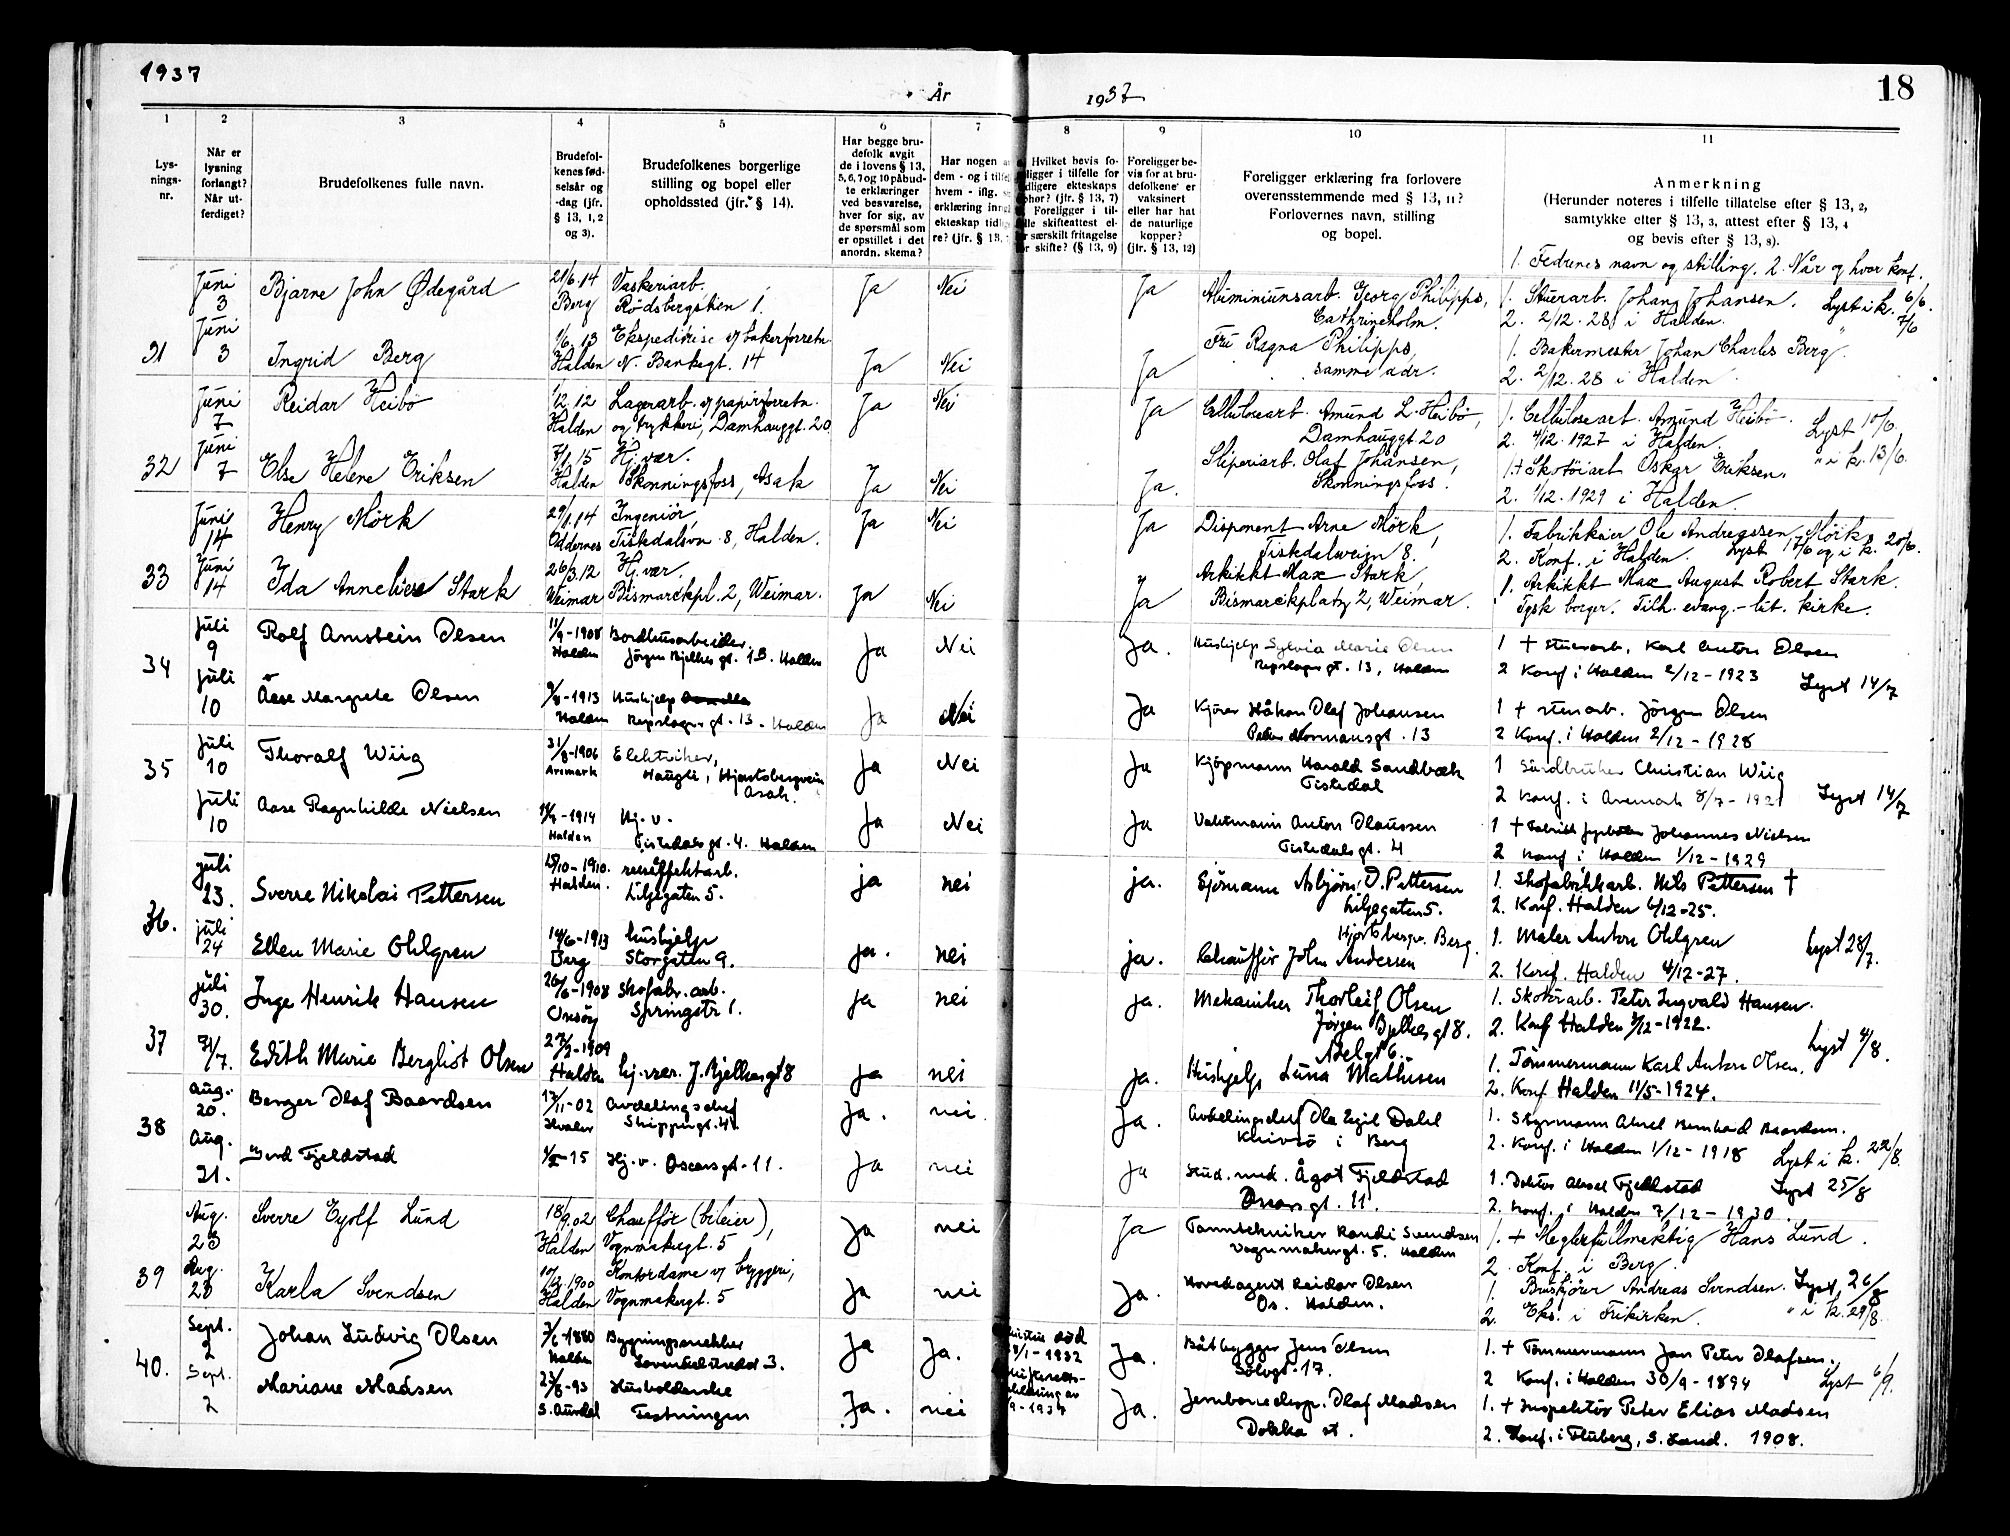 1937
År
1937
18
1
2
3
4
5
6
7
8
9
10
11
Lys-
nings-
nr.
Når er
lysning
forlangt?
Når ut-
ferdiget?
Brudefolkenes fulle navn.
Brudefol-
kenes fød-
selsår og
-dag (jfr.
§ 13, 1, 2
og 3).
Brudefolkenes borgerlige
stilling og bopel eller
opholdssted (jfr. § 14).
Har begge bru-
defolk avgit
de i lovens § 13,
5, 6, 7 og 10 påbud-
te erklæringer
ved besvarelse,
hver for sig, av
de spørsmål som
er opstillet i det
anordn. skema?
Har nogen
dem - og i tilfel
hvem - iflg.
erklæring inng
ekteskap tidlig
re? (jfr. § 13,
Hvilket bevis fo-
ligger i tilfelle for
dligere ekteskaps
phør? (jfr. § 13, 7)
Foreligger i til-
lle skifteattest el-
r særskilt fritagelse
r skifte? (§ 13, 9)
Foreligger be-
vis for at bru-
defolkene er
vaksinert
eller har hat
de naturlige
kopper?
(jfr. § 13, 12)
Foreligger erklæring fra forlovere
overensstemmende med § 13, 11?
Forlovernes navn, stilling
og bopel.
Anmerkning
(Herunder noteres i tilfelle tillatelse efter § 13, 2,
samtykke efter § 13, 3, attest efter § 13, 4
og bevis efter § 13, 8).
1. Fedrenes navn og stilling. 2. Når og hvor konf.
Juni 3 Bjarne John Ødegård 21/6.14 Berg Vaskeriarb. Rødsbergstien 1. Ja Nei Ja Aluminiumsarb. Georg Philipps, Cathrineholm. 1. Stuerarb. Johan Johansen. Lyst i k. 6/6.
2. 2/12.28 i Halden. 7/6
31 Juni 3 Ingrid Berg 1/6.13 Halden Ekspeditrise v/ bakerforretn. N. Bankegt. 14 Ja Nei Ja Frú Ragna Philipps, samme adr. 1. Bakermester Johan Charles Berg.
2. 2/12.28 i Halden.
Juni 7 Reidar Heibø 1/12.12 Halden Lagerarb. v/ papirforretn. og trykkeri, Damhauggt. 20 Ja Nei Ja Cellulosearb. Amund L. Heibø, Damhauggt 20 1. Cellulosearb. Amund Heibø. Lyst 10/6.
2. 4/12.1927 i Halden. " i k. 13/6.
32 Juni 7 Else Helene Eriksen 7/1.15 Halden Hj. vær. Skonningsfoss, Asak Ja Nei Ja. Sliperiarb. Olaf Johansen, Skonningsfoss. 1.+ Skotøiarb Oskar Eriksen.
2. 1/12.1929 i Halden.
Juni 14 Henry Mörk 29/1.14 Oddernes Ingeniör, Tistedalsvn. 8, Halden. Ja Nei Ja Disponent Arne Mörk, Tistedalsveien 8. 1. Fabrikkeier Ole Andreassen Mörk.
2. Konf. i Halden. Lyst 17/6 og i k. 20/6.
33 Juni 14 Ida Anneliese Stark 26/3.12 Weimar Hj. vær. Bismarckpl. 2, Weimar. Ja Nei Ja Arkitekt Max Stark, Bismarckplatz 2, Weimar. 1. Arkitekt Max August Robert Stark.
Tysk borger. Tilh. evang.-lut. kirke.
34 Juli 9 Rolf Arnstein Olsen 11/9-1908 Halden Bordhusarbeider, Jörgen Bjelkes gt. 1B. Halden Ja Nei Ja. Hushjelp Sylvia Marie Olsen Repslagergt. 13, Halden 1 + stuerarb. Karl Anton Olsen
2 Konf i Halden 2/12-1923 Lyst 14/7
Juli 10 Åase Margrete Olsen 1913 Halden Hushjelp Repslagergt. 13. Halden Ja Nei Ja Kjörer Håkon Olaf Johansen Peder Normansgt. 13 1 + stenarb. Jörgen Olsen
2 Konf. i Halden 2/12-1928
35 Juli 10 Thoralf Wiig 31/8-1906 Aremark Elektriker, Haugli, Hjortsbergveien Asak. Ja Nei Ja Kjöpmann Harald Sandbæk Tistedal 1 Småbruker Christian Wiig
2 Konf. i Aremark 8/7-1921 Lyst 14/7
Juli 10 Aase Ragnhilde Nielsen 1914 Halden Hj. v. Tistedalsgt. 4. Halden Ja Nei Ja Vaktmann Anton Olaussen Tistedalsgt. 4 1 + Johannes Nielsen
2 Konf i Halden 1/12-1929
juli 23. Sverre Nikolai Pettersen 18/10-1910. Halden. reiseffektarb. Liljegaten 5. ja nei ja. Sjømann Asbjørn O. Pettersen Liljegaten 5. 1. Skofabrikkarb. Nils Pettersen +
2. Konf. Halden 6/12-25.
36. juli 24 Ellen Marie Ohlgren 14/6-1913 Berg hushjelp Storgaten 9. ja. nei ja. Chauffør John Andersen Hjortsbergv. Berg. 1. Maler Anton Ohlgren Lyst 28/7.
2. Konf. Halden 4/12-27.
juli 30. Inge Henrik Hansen 26/6-1908 Onsøy Skofabr. arb. Springstr 1. ja nei ja. Mekaniker Thorleif Olsen Jørgen Bjelkesgt 8. 1. Skotøiarb. Peter Ingvald Hansen.
2. Konf Halden 3/12-1922.
37 31/7. Edith Marie Bergliot Olsen 1909 Halden hj. vær. J. Bjelkesgt 8 ja nei ja. Hushjelp Luna Mathisen Adelgt 6. 1. Tömmermann Karl Anton Olsen. Lyst 4/8.
2. Konf Halden 11/5-1924.
38 Aug. 20. Berger Olaf Baardsen 17/11-02 Hvaler Avdelingschef Skippergt. 4. Ja. nei. Ja. Avdelingschef Ole Egil Dahl Knivsö i Berg 1. Styrmann Aksel Bernhard Baardsen.
2. Konf. i Halden 1/12-1918 Lyst i k. 22/8.
Aug. 21. Gerd Fjeldstad 15 Hj. v. Oscarsgt. 11. Ja nei Ja Stud. med. Ågot Fjeldstad Oscarsgt. 11. 1. Doktor Aksel Fjeldstad Lyst 25/8
2. Konf. i Halden 7/12-1930
Aug. 23 Sverre Eyolf Lund 18/9.02 Halden Chauffør (bileier), Vognmakergt. 5 Ja nei Ja Tanntekniker Randi Svendsen Vognmakergt. 5. Halden 1. + Meglerfullmektig Hans Lund.
2. Konf. i Berg.
39 Aug. 23 Karla Svendsen 1900 Halden Kontordame v/ bryggeri, Vognmakergt. 5 Ja nei Ja. Hovedagent Reidar Olsen Os. Halden. 1. Bruskjører Andreas Svendsen. Lyst 26/8
2. Eks. i Frikirken. " i k. 29/8.
Sept. 2 Johan Ludvig Olsen 1880 Halden Bygningssnekker 3. Ja Ja. død 1932 Ja. Båtbygger Jens Olsen Sølvgt. 17. 1. + Tömmermann Jan Peter Olafsen.
2 Konf. i Halden 30/9-1894 Lyst 6/9.
40. Sept. 2 Mariane Madsen 93 S. Aurdal Husholderske Festningen Ja. nei 9-1937 Ja. Jernbaneeksp. Olaf Madsen Dokka st. 1. + Inspektör Peter Elias Madsen
2. Konf. i Fluberg, S. Land. 1908.